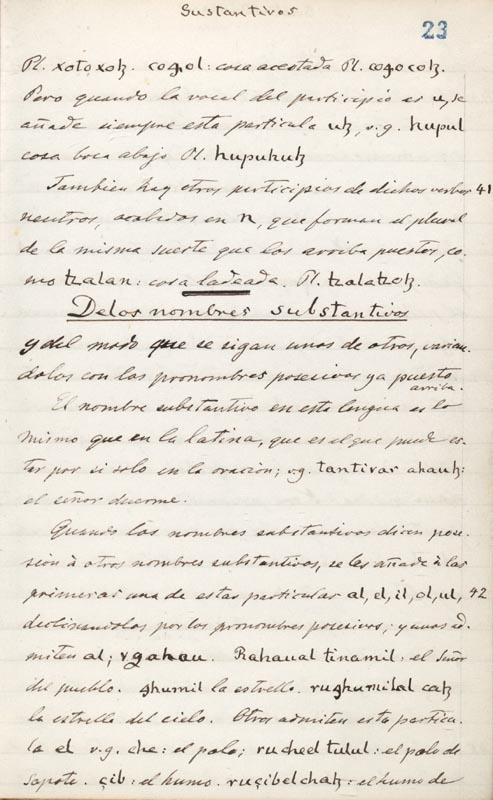 Sustantivos
23
Pl. xotoxoꜩ. cogol: cosa acostada Pl. cogocoꜩ.
Pero quando la vocal del participio es u, se
añade siempre esta particula uꜩ, v.g. hupul
cosa boca abajo Pl. hupuhuꜩ
Tambien hay otros participios de dichos verbos 41
neutros, acabados en n, que forman el plural
de la misma suerte que los arriba puestos, co-
mo tzalan: cosa ladeada. Pl. tzalatzoꜩ.
De los nombres substantivos
y del modo que se sigan unos de otros, varian-
dolos con los pronombres posesivos ya puesto
arriba.
El nombre substantivo en esta lengua es lo
mismo que en la latina, que es el que puede es-
tar por si solo en la oracion; v.g. tantivar ahauꜩ:
el señor duerme.
Quando los nombres substantivos dicen pose-
sión à otros nombres substantivos, se les añade à las
primeras una de estas particulas al, el, il, ol, ul, 42
declinandolos por los pronombres posesivos; y unos ad-
miten al; v.g. ahau. Rahaual tinamil: el Señor
del pueblo. ghumil la estrella. rughumilal caꜩ
la estrella del cielo. Otros admiten esta particu-
la el v.g. che: el palo; rucheel tulul: el palo de
sapote. çib: el humo. ruçibel chaꜩ: el humo de